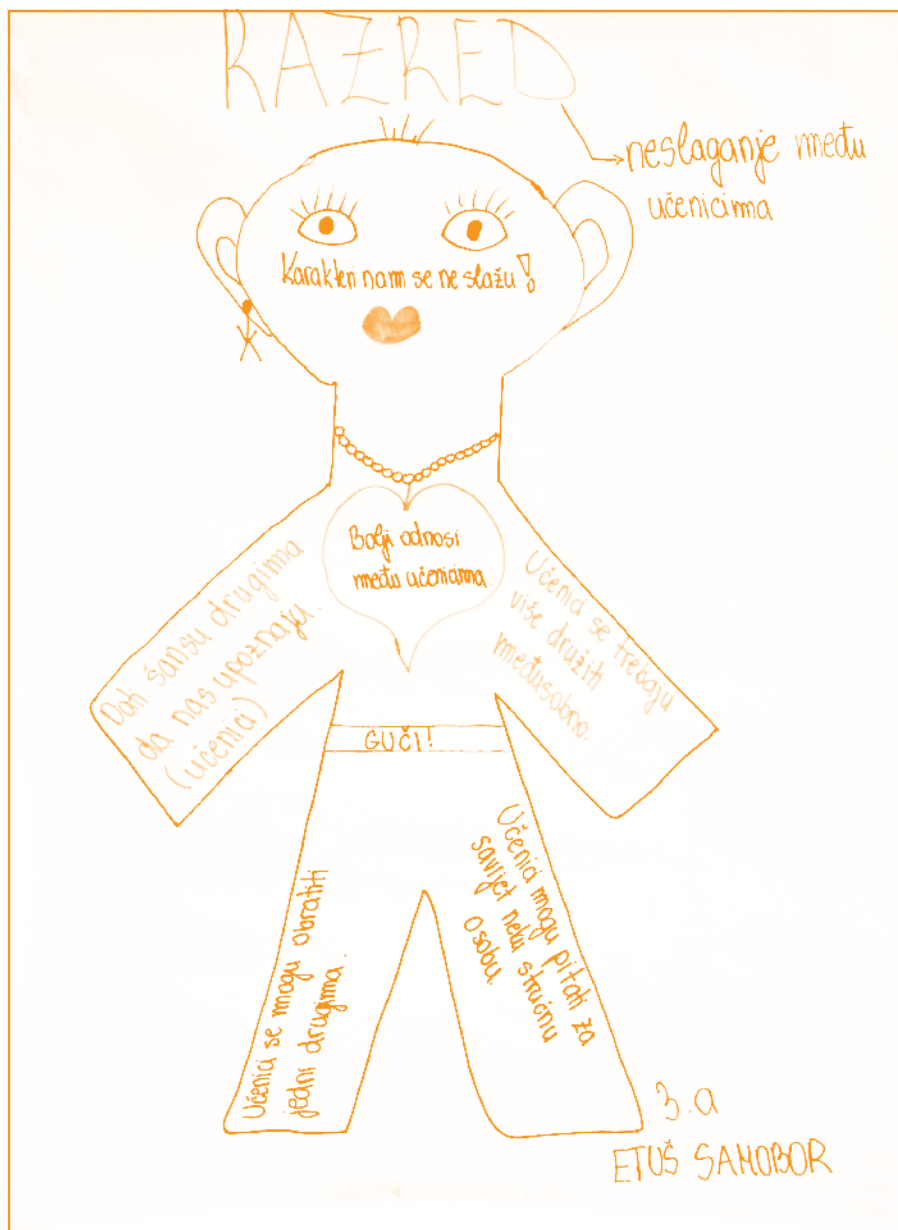 RAZRED
neslaganje među
učenicima
Karakteri nam se ne slažu!
Bolji odnosi
među učenicima.
Dati šansu drugima
da nas upoznaju.
(učenici)
Učenici se trebaju
više družiti
međusobno.
GUČI!
Učenici se mogu obratiti
jedni drugima.
Učenici mogu pitati za
savijet neku stručnu
osobu.
3.a
ETUŠ SAMOBOR